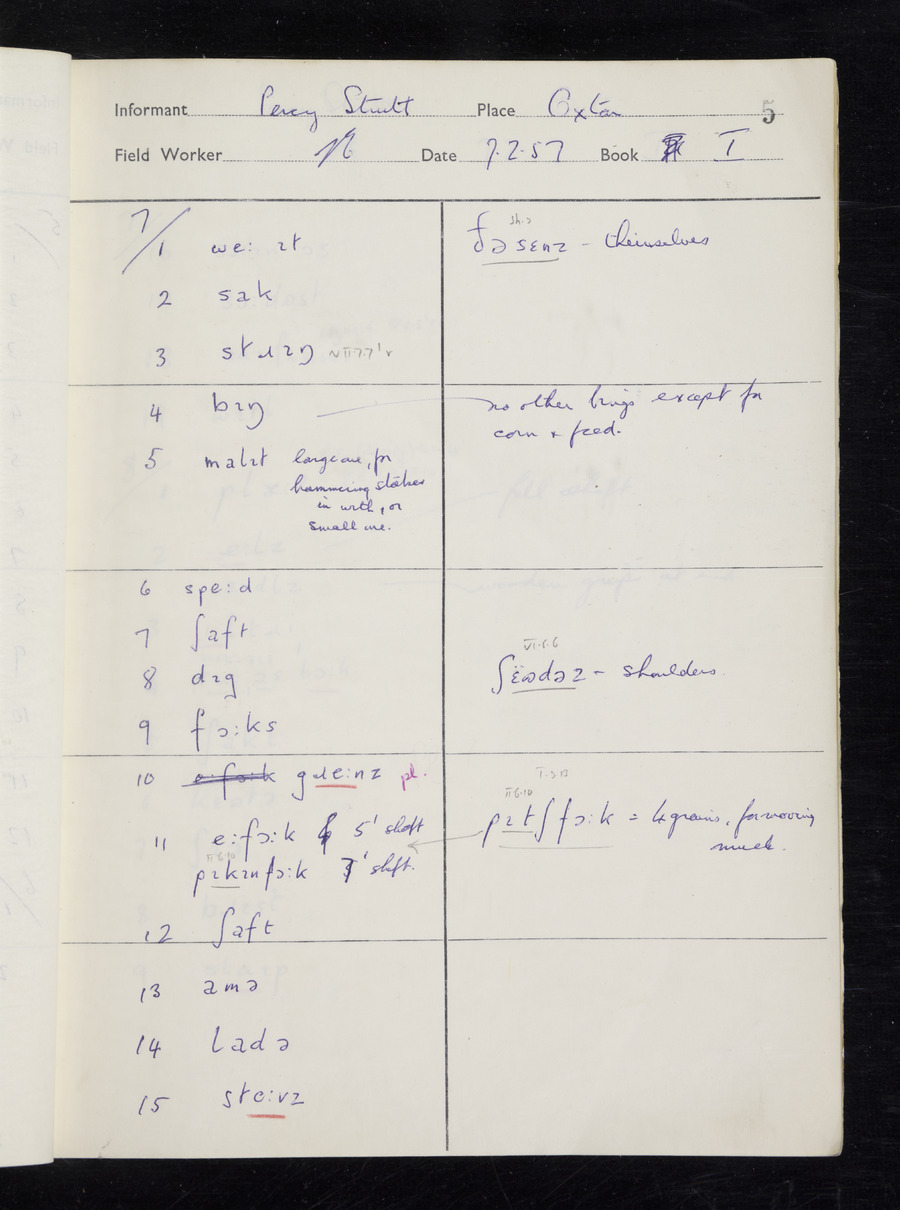 Informant Percy Strutt Place Oxton 5
Field Worker Date 7.2.57 Book I
7/1 we:ɪt
ðəsɛnz – theirselves
2 sak
3 stɹɪŋ
4 bɪŋ
no other bings except for
corn & feed.
5 malɪt large one, for
hammering stakes
in with, or
small one.
6 spe:d
7 ʃaft
8 dɪg
VI.6.6
ʃɛ̈ʊdəz – shoulders.
9 fɔ:ks
10 gɹe:nz pl.
I.3.13
II.6.10
pɪtʃfɔ:k = 4 grains, for moving
muck.
11 e:fɔ:k 5' shaft
pɪkɪnfɔ:k 7' shaft.
12 ʃaft
13 amə
14 ladə
15 ste:vz